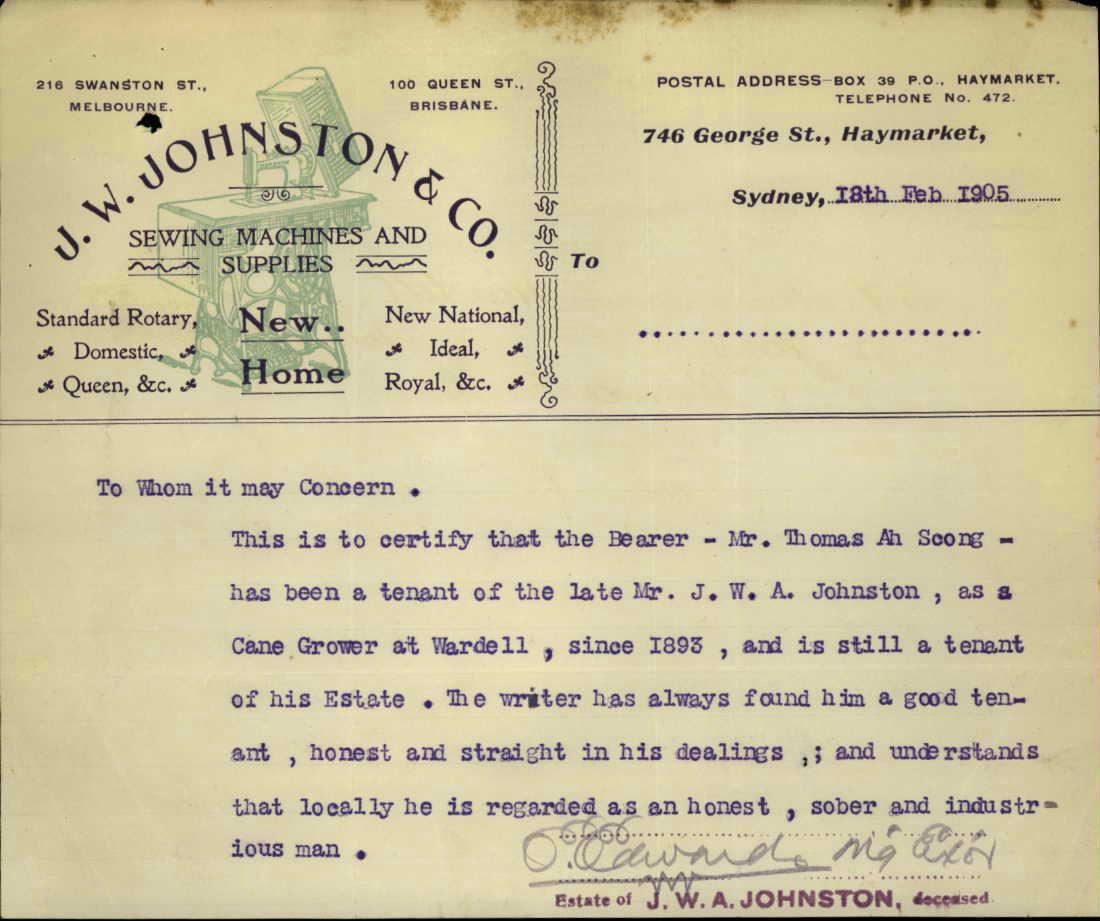 216 SWANSTON ST.,
MELBOURNE.
100 QUEEN ST.,
BRISBANE.
J. W. JOHNSTON & CO.
SEWING MACHINES AND
SUPPLIES
Standard Rotary,
Domestic,
Queen, &c.
New..
Home
New National,
Ideal,
Royal, &c.
POSTAL ADDRESS—BOX 39 P.O., HAYMARKET.
TELEPHONE No. 472.
746 George St., Haymarket,
Sydney, 18th Feb 1905
To
To Whom it may Concern .
This is to certify that the Bearer - Mr. Thomas Ah Scong -
has been a tenant of the late Mr. J. W. A. Johnston , as a
Cane Grower at Wardell , since 1893 , and is still a tenant
of his Estate . The writer has always found him a good ten-
ant , honest and straight in his dealings ,; and understands
that locally he is regarded as an honest , sober and industr-
ious man .
Edwards
Estate of J. W. A. JOHNSTON, deceased.